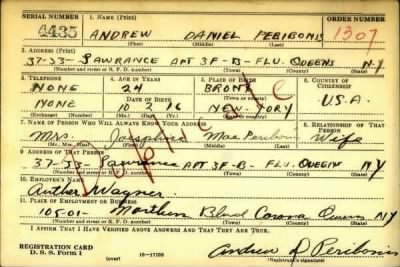 SERIAL NUMBER 1. NAME (Print) ORDER NUMBER
4435 ANDREW DANIEL PERIBONIS 1307
(First) (Middle) (Last)
2. ADDRESS (Print)
37-33- APT 3F-B- FLU. QUEENS NY
(Number and street or R. F. D. number) (Town) (County) (State)
3. TELEPHONE 4. AGE IN YEARS 5. PLACE OF BIRTH 6. COUNTRY OF CITIZENSHIP
NONE 24 BRONX
DATE OF BIRTH (Town or county)
NONE 10 2 16 NEW-YORK U.S.A.
(Mo.) (Day) (Yr.) (State or country)
7. NAME OF PERSON WHO WILL ALWAYS KNOW YOUR ADDRESS 8. RELATIONSHIP OF THAT PERSON
Mrs. Josephine Mae Wife
(Mr., Mrs., Miss) (First) (Middle) (Last)
9. ADDRESS OF THAT PERSON
37-33- APT 3F-B- FLU. QUEENS NY
(Number and street or R. F. D. number) (Town) (County) (State)
Duplicate
10. EMPLOYER'S NAME
Wagner
11. PLACE OF EMPLOYMENT OR BUSINESS
105-01- Northern Blvd Corona Queens NY
(Number and street or R. F. D. number) (Town) (County) (State)
I AFFIRM THAT I HAVE VERIFIED ABOVE ANSWERS AND THAT THEY ARE TRUE.
REGISTRATION CARD
D. S. S. Form 1 16-17105 Andrew D Peribonis
(Registrant's signature)